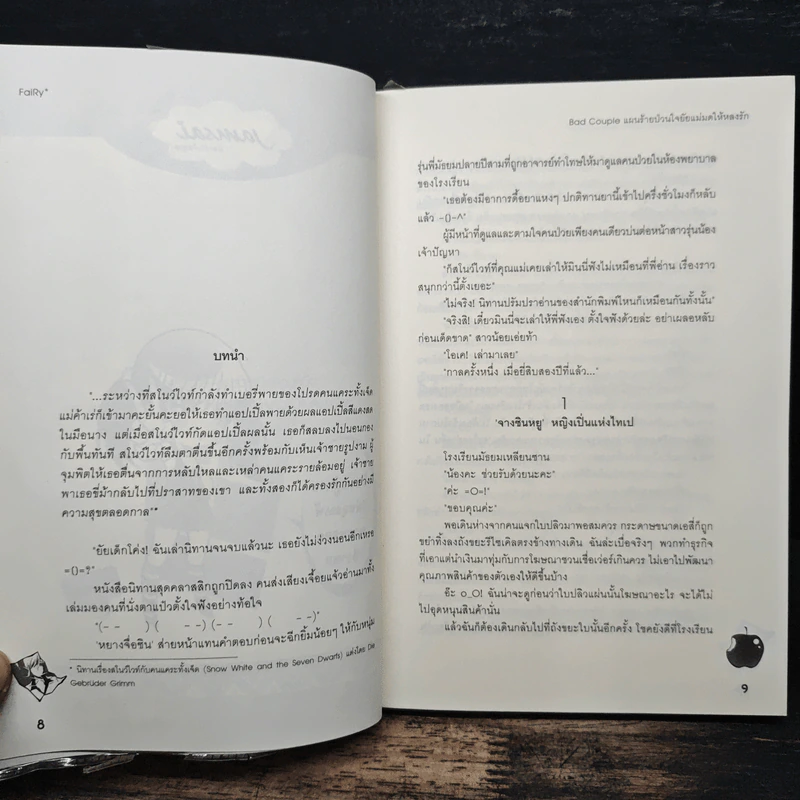 FaiRy*
jamsai
บทนำ
"...ระหว่างที่สโนว์ไวท์กำลังทำเบอรี่พายของโปรดคนแคระทั้งเจ็ด
แม่ค้าเร่ก็เข้ามาคะยั้นคะยอให้เธอทำแอปเปิ้ลพายด้วยผลแอปเปิ้ลสีแดงสด
ในมือนาง แต่เมื่อสโนว์ไวท์กัดแอปเปิ้ลผลนั้น เธอก็สลบลงไปนอนกอง
กับพื้นทันที สโนว์ไวท์ลืมตาตื่นขึ้นอีกครั้งพร้อมกับเห็นเจ้าชายรูปงาม ผู้
จุมพิตให้เธอตื่นจากการหลับใหลและเหล่าคนแคระรายล้อมอยู่ เจ้าชาย
พาเธอขี่ม้ากลับไปที่ปราสาทของเขา และทั้งสองก็ได้ครองรักกันอย่างมี
ความสุขตลอดกาล"*
"ยัยเด็กโค่ง! ฉันเล่านิทานจนจบแล้วนะ เธอยังไม่ง่วงนอนอีกเหรอ
=()=?"
หนังสือนิทานสุดคลาสสิกถูกปิดลง คนส่งเสียงเจื้อยแจ้วอ่านมาทั้ง
เล่มมองคนที่นั่งตาแป๋วตั้งใจฟังอย่างท้อใจ
"(- - ) ( - -) (- - ) ( - -)"
'หยางจื่อซิน' ส่ายหน้าแทนคำตอบก่อนจะฉีกยิ้มน้อยๆ ให้กับหนุ่ม
* นิทานเรื่องสโนว์ไวท์กับคนแคระทั้งเจ็ด (Snow White and the Seven Dwarts) แต่งโดย Die
Gebrüder Grimm
8
Bad Couple แผนร้ายป่วนใจยัยแม่มดให้หลงรัก
รุ่นพี่มัธยมปลายปีสามที่ถูกอาจารย์ทำโทษให้มาดูแลคนป่วยในห้องพยาบาล
ของโรงเรียน
"เธอต้องมีอาการดื้อยาแหงๆ ปกติทานยานี้เข้าไปครึ่งชั่วโมงก็หลับ
แล้ว -()-^"
ผู้มีหน้าที่ดูแลและตามใจคนป่วยเพียงคนเดียวบ่นต่อหน้าสาวรุ่นน้อง
เจ้าปัญหา
"ก็สโนว์ไวท์ที่คุณแม่เคยเล่าให้มินนี่ฟังไม่เหมือนที่พี่อ่าน เรื่องราว
สนุกกว่านี้ตั้งเยอะ"
"ไม่จริง! นิทานปรัมปราอ่านของสำนักพิมพ์ไหนก็เหมือนกันทั้งนั้น"
"จริงสิ! เดี๋ยวมินนี่จะเล่าให้พี่ฟังเอง ตั้งใจฟังด้วยล่ะ อย่าเผลอหลับ
ก่อนเด็ดขาด" สาวน้อยเอ่ยท้า
"โอเค! เล่ามาเลย"
"กาลครั้งหนึ่ง เมื่อยี่สิบสองปีที่แล้ว..."
1
'จางซินหยู' หญิงเป่นแห่งไทเป
โรงเรียนมัธยมเหลียนซาน
"น้องคะ ช่วยรับด้วยนะคะ"
"ค่ะ =O=!"
"ขอบคุณค่ะ"
พอเดินห่างจากคนแจกใบปลิวมาพอสมควร กระดาษขนาดเอสี่ก็ถูก
ขยำทิ้งลงถังขยะรีไซเคิลตรงข้างทางเดิน ฉันล่ะเบื่อจริงๆ พวกทำธุรกิจ
ที่เอาแต่นำเงินมาทุ่มกับการโฆษณาชวนเชื่อเว่อร์เกินควร ไม่เอาไปพัฒนา
คุณภาพสินค้าของตัวเองให้ดีขึ้นบ้าง
อ๊ะ o_O! ฉันน่าจะดูก่อนว่าใบปลิวแผ่นนั้นโฆษณาอะไร จะได้ไม่
ไปอุดหนุนสินค้านั่น
แล้วฉันก็ต้องเดินกลับไปที่ถังขยะใบนั้นอีกครั้ง โชคยังดีที่โรงเรียน
9